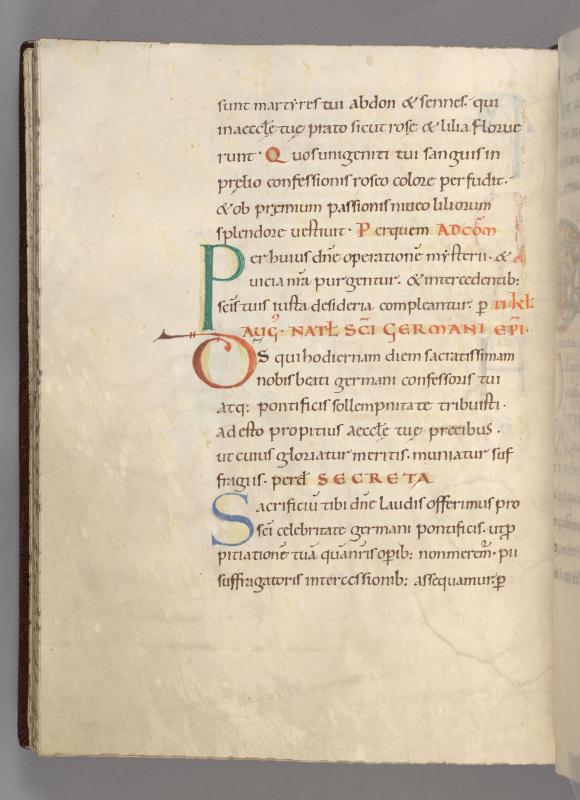 sunt martyres tui abdon & sennes. qui
in aeccłę tuę prato sicut rosę & lilia florue
runt. Quos unigeniti tui sanguis in
pręlio confessionis roseo colore perfudit.
& ob pręmium passionis niueo liliorum
splendore uestiuit. Per quem AD COM̄
Per huius dn̄e operationē mysterii. &
uicia nr̄a purgentur. & intercedentib:
scīs tuis iusta desideria compleantur. p̄ II kł
AUḠ. NATł SC̄I GERMANI EP̄I.
DS̄ qui hodiernam diem sacratissimam
nobis beati germani confessoris tui
atq: pontificis sollempnitate tribuisti.
adesto propitius aeccłę tuę precibus.
ut cuius gloriatur meritis. muniatur suf
fragiis. per dn̄m SECRETA
Sacrificiū tibi dn̄e laudis offerimus pro
sc̄i celebritate germani pontificis. ut p̄
pitiationē tuā quā nr̄is opib: non meremr̄. pii
suffragatoris intercessionib: assequamur. p̄